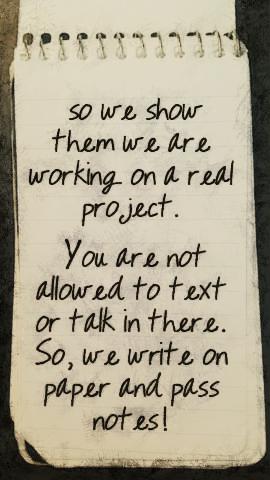 so we show
them we are
working on a real
project.
You are not
allowed to text
or talk in there.
So, we write on
paper and pass
notes!